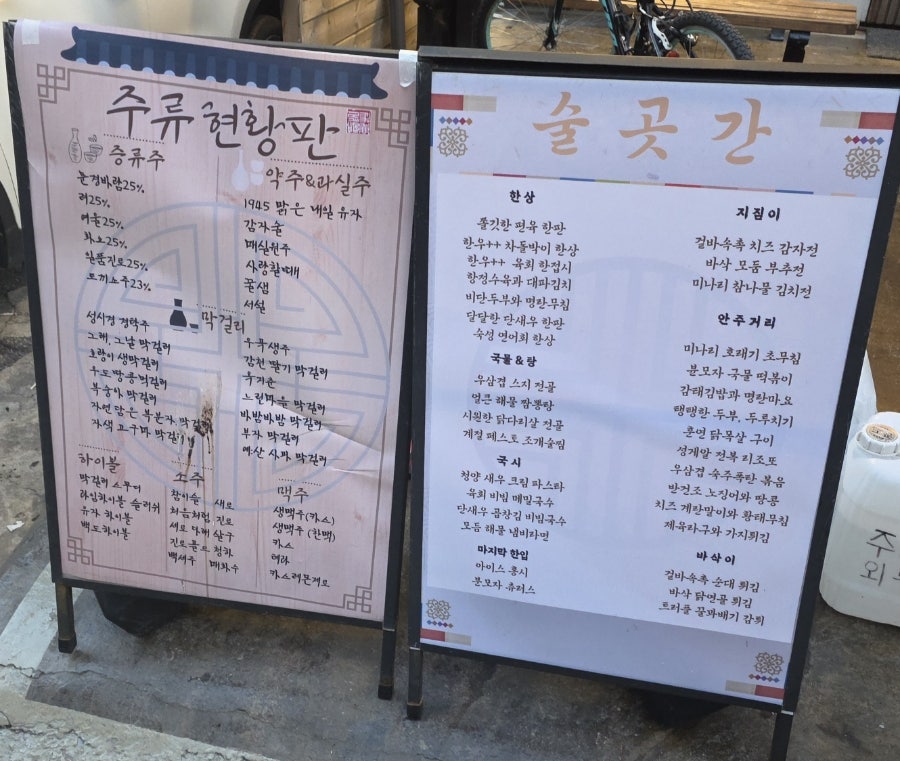 주류 현황판
증류주
문경바람25%
려25%
여울25%
화요25%
일품진로25%
토끼소주23%
약주&과실주
1945 맑은 내일 유자
감자술
매실원주
사랑할때
꿀샘
서설
막걸리
성시경 경탁주
느레, 그날 막걸리
호랑이 생막걸리
우도땅콩막걸리
복숭아 막걸리
자연 담은 복분자 막걸리
자색 고구마 막걸리
우곡생주
감천 딸기 막걸리
느린마을 막걸리
바밤바밤 막걸리
부자 막걸리
예산 사과 막걸리
하이볼
막걸리 스무디
라임하이볼 슬러쉬
유자 하이볼
백도하이볼
소주
참이슬 새로
처음처럼 진로
새로 다래 살구
진로골드 청하
백세주 매화수
맥주
생맥주(카스)
생맥주 (한맥)
카스
테라
카스레몬제로
술곳간
한상
쫄깃한 편육 한판
한우++ 차돌박이 한상
한우++ 육회 한접시
항정수육과 대파김치
비단두부와 명란무침
달달한 단새우 한판
숙성 연어회 한상
국물&탕
우삼겹 스지 전골
얼큰 해물 짬뽕탕
시원한 닭다리살 전골
계절 페스토 조개술찜
국시
청양 새우 크림 파스타
육회 비빔 메밀국수
단새우 곱창김 비빔국수
모둠 해물 냄비라면
마지막 한입
아이스 홍시
분모자 츄러스
지짐이
겉바속촉 치즈 감자전
바삭 모둠 부추전
미나리 참나물 김치전
안주거리
미나리 호래기 초무침
분모자 국물 떡볶이
감태김밥과 명란마요
탱탱한 두부, 두루치기
훈연 닭목살 구이
성게알 전복 리조또
우삼겹 숙주폭탄 볶음
반건조 노징어와 땅콩
치즈 계란말이와 황태무침
제육라구와 가지튀김
바삭이
겉바속촉 순대 튀김
바삭 닭연골 튀김
트러플 꿀과배기 감튀
주
외